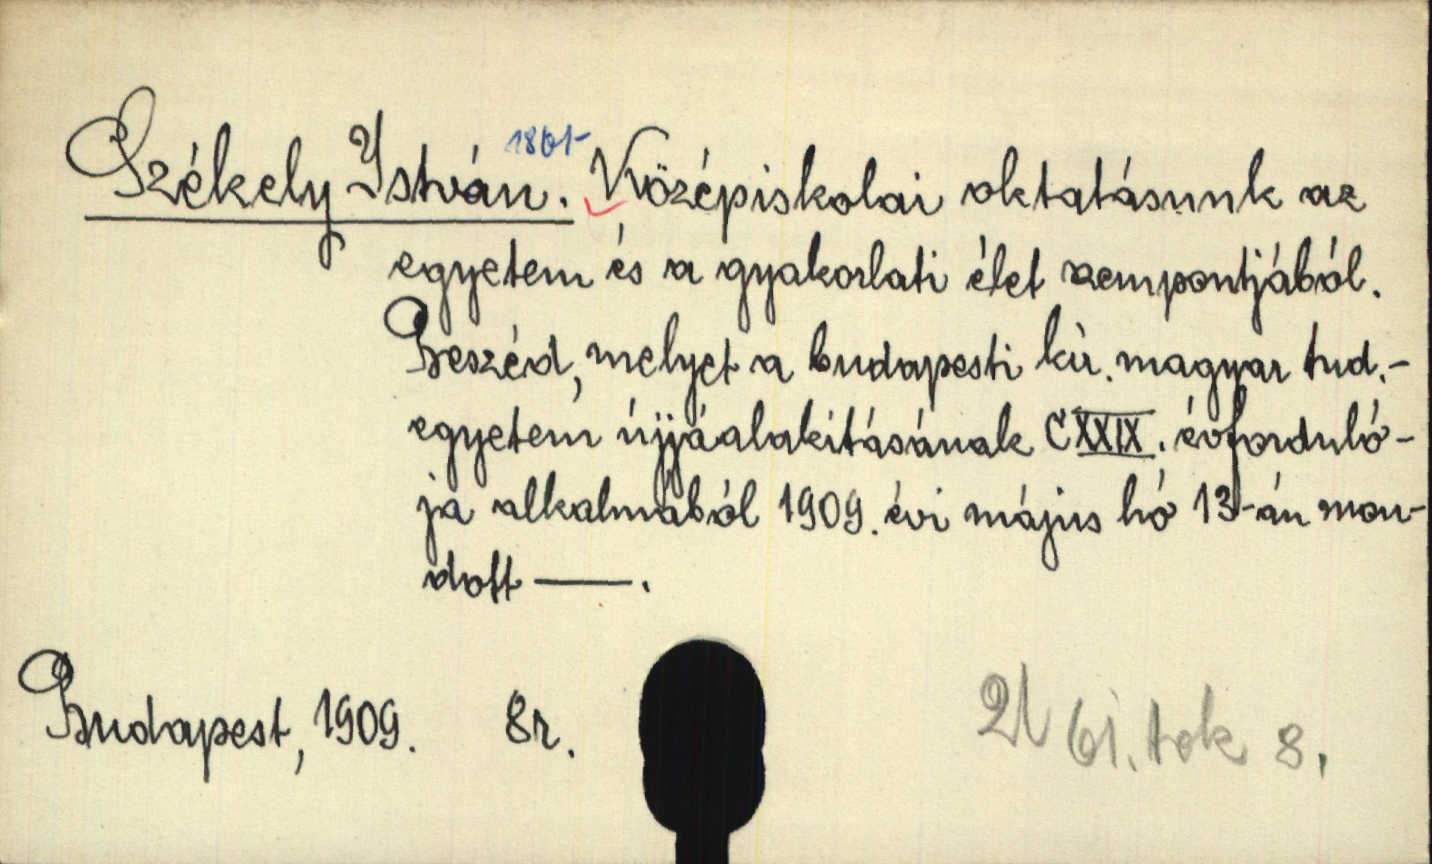 Székely István. 1861- Középiskolai oktatásunk az
egyetem és a gyakorlati élet szempontjából.
Beszéd, melyet a budapesti kir. magyar tud.-
egyetem újjáalakításának CXXIX. évforduló-
ja alkalmából 1909. évi május hó 13-án mon-
dott ——.
Budapest, 1909. 8r.
61. tok 8.